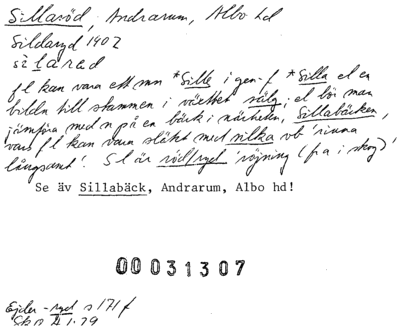 Sillaröd, Andrarum, Albo hd
Sildaryd 1402
sɛ̀laröd
fl kan vara ett mn *Sille i gen-f *Silla el en
bildn till stammen i växtet sälg, el bör man
jämföra med n på en bäck i närheten, Sillabäcken,
vars fl kan vara släkt med silka vb 'rinna
långsamt'. Sl är röd/ryd 'röjning (fra i skog)'
Se äv Sillabäck, Andrarum, Albo hd!
00031307
Ejder -ryd s 171 f
Sk o A 1:79